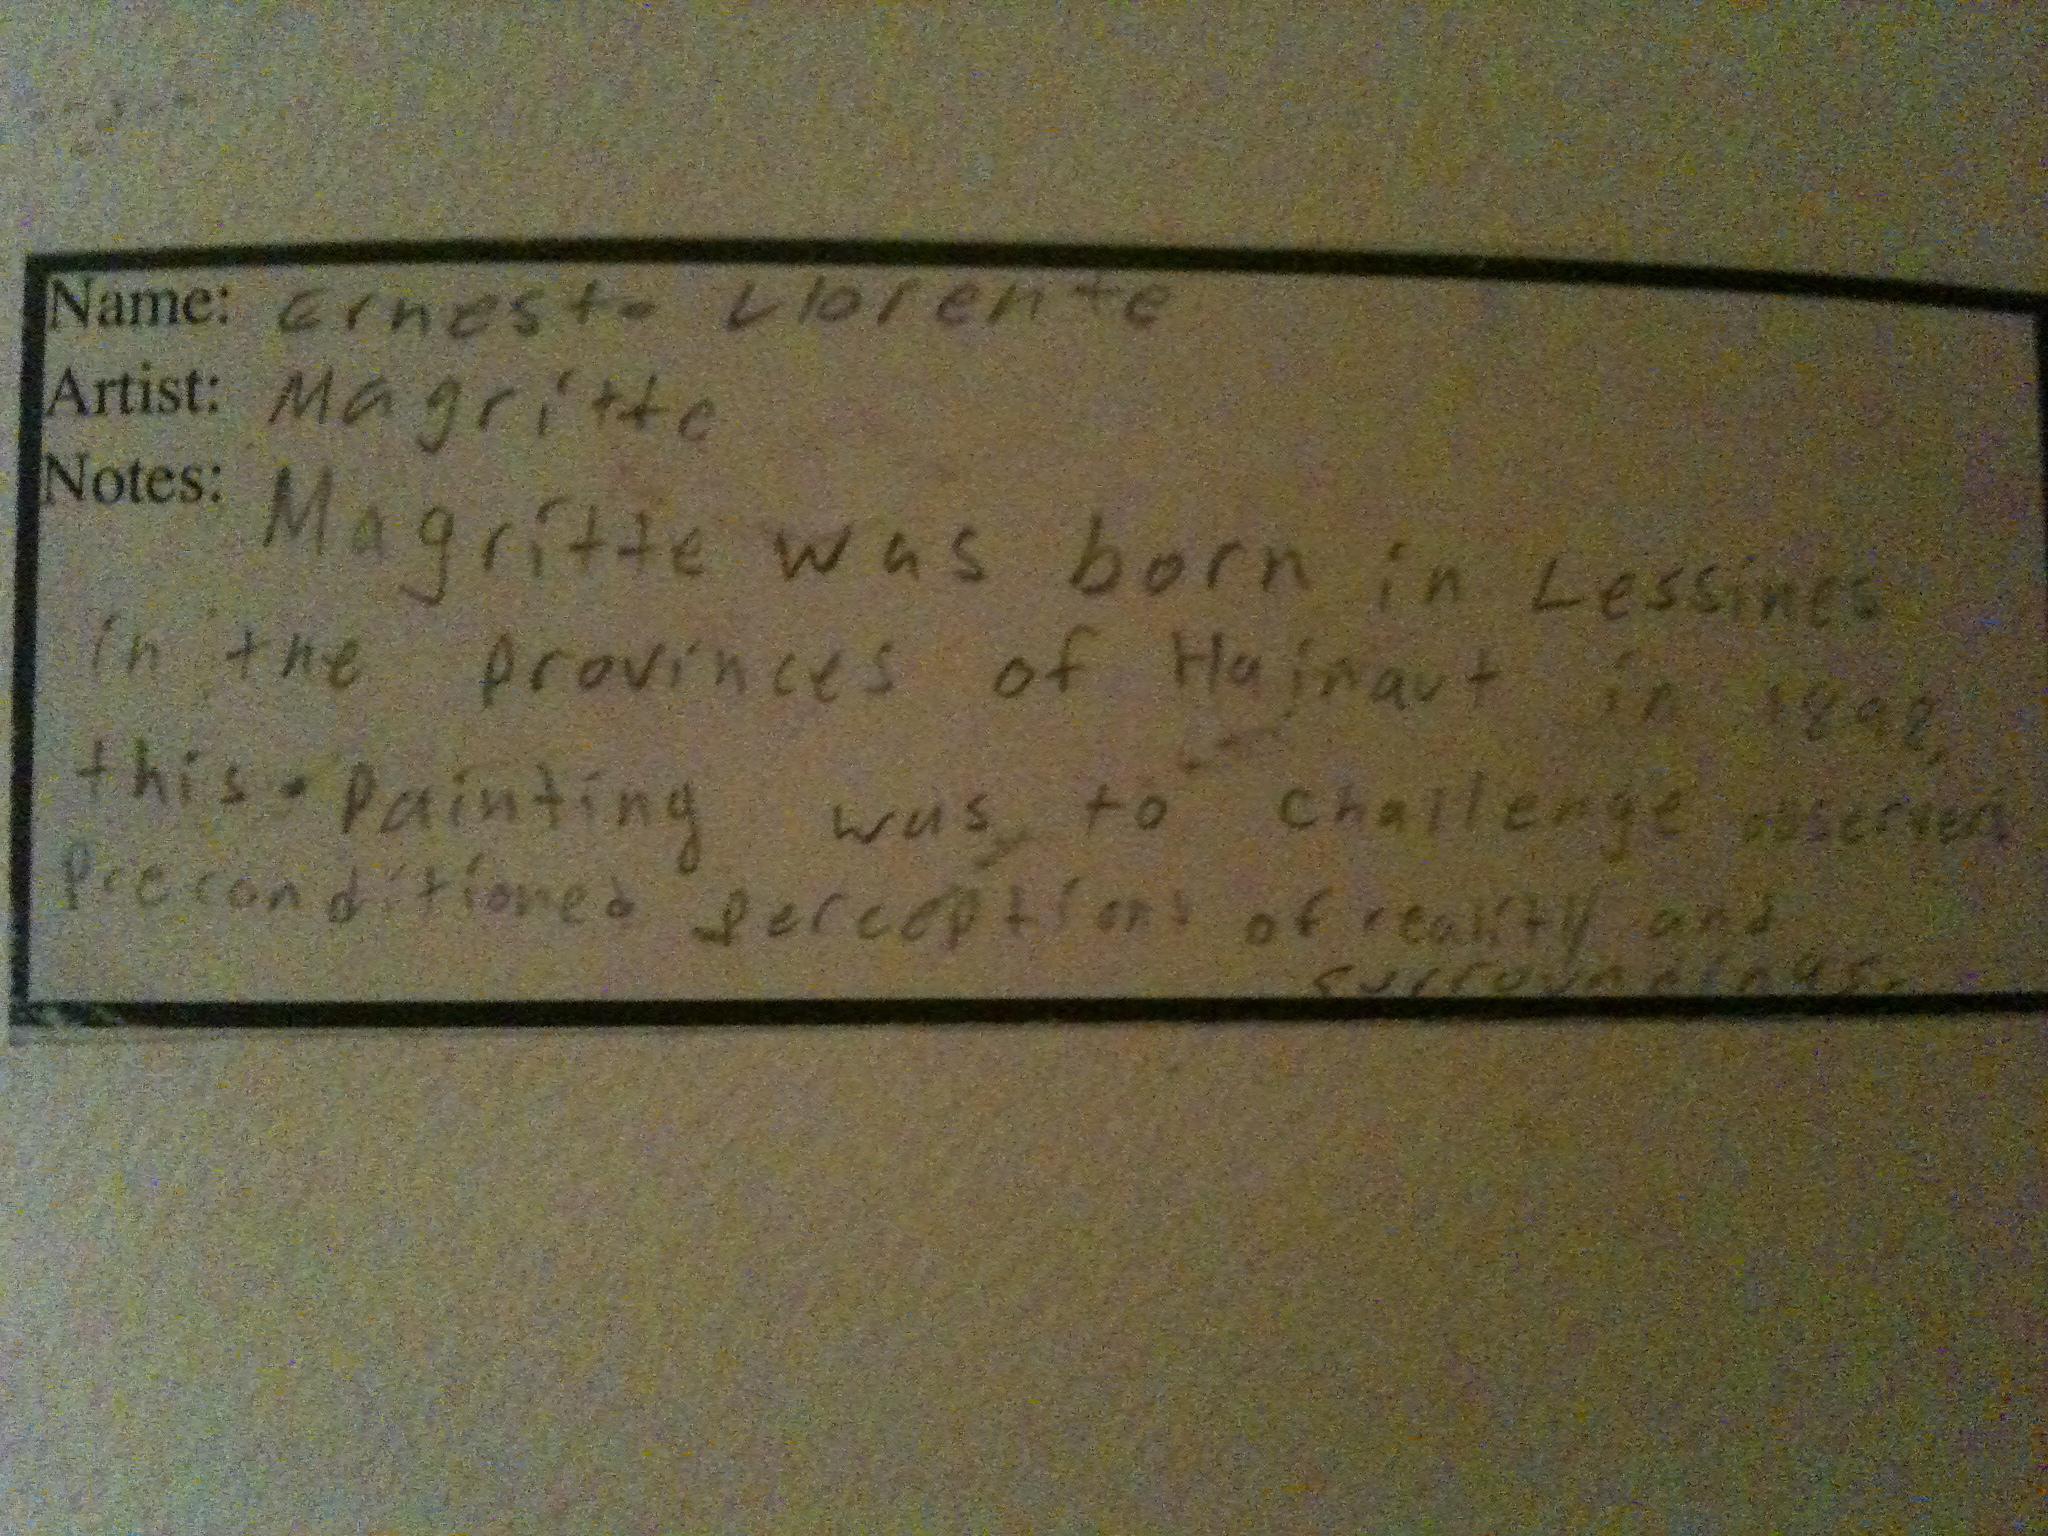 Name: Ernesto Llorente
Artist: Magritte
Notes: Magritte was born in Lessines
in the provinces of Hainaut in
this. painting was to challenge observers
Preconditioned perceptions of reality and
surroundings.